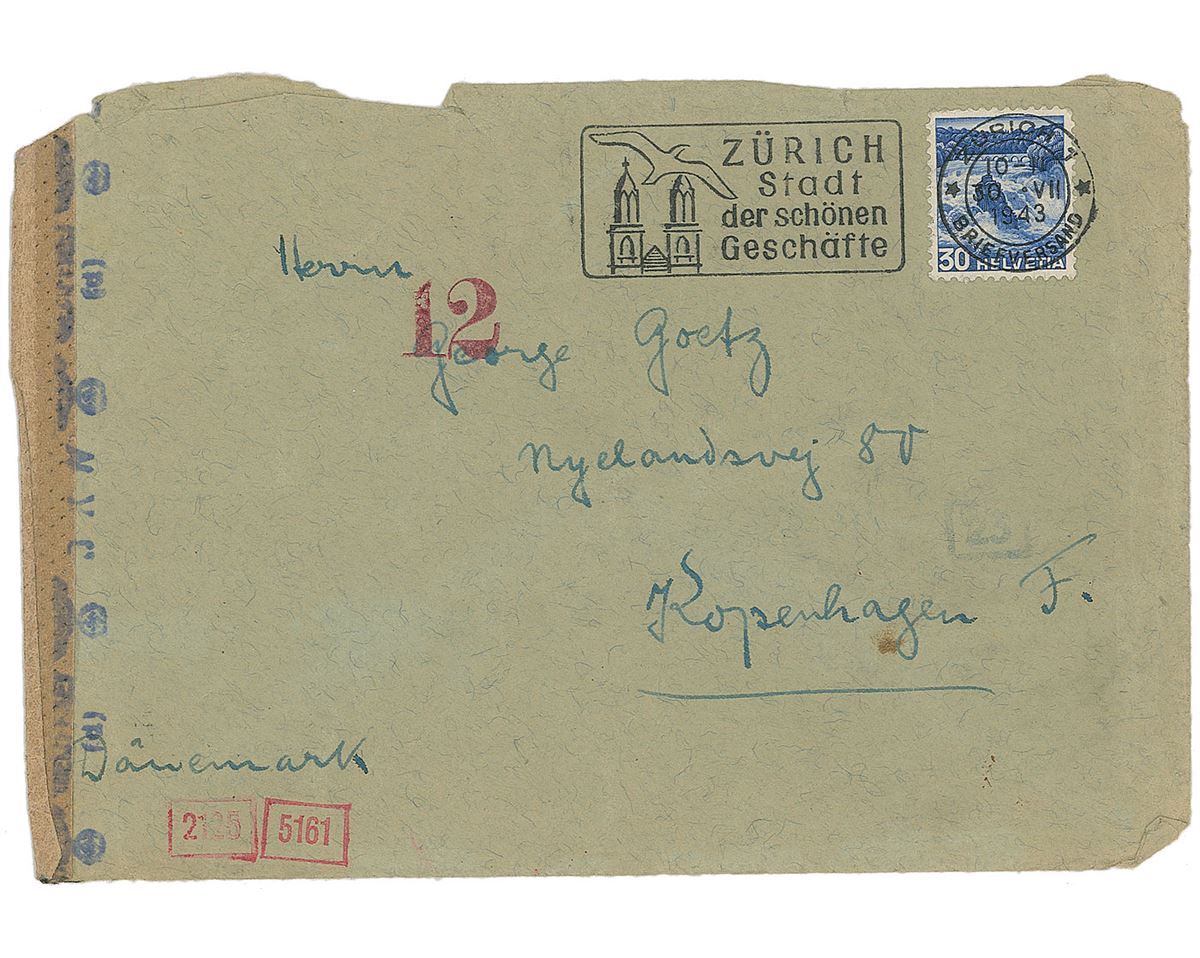 ZÜRICH
Stadt
der schönen
Geschäfte
ZÜRICH 1
30. VII
1943
BRIEFVERSAND
30 HELVETIA
Herrn
12
George Goetz
Nyelandsvej 80
23
Kopenhagen F.
Dänemark
2125 5161